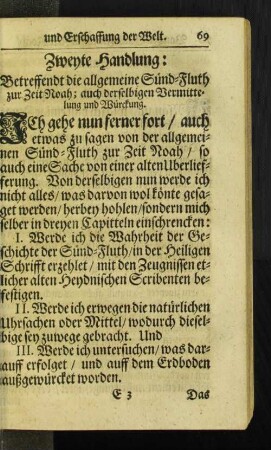 und Erschaffung der Welt. 69
Zweyte Handlung:
Betreffendt die allgemeine Sünd-Fluth
zur Zeit Noah; auch derselbigen Vermitte-
lung und Würckung.
ICh gehe nun ferner fort / auch
etwas zu sagen von der allgemei-
nen Sünd-Fluth zur Zeit Noah / so
auch eine Sache von einer alten Uberlief-
ferung. Von derselbigen nun werde ich
nicht alles / was darvon wol könte gesa-
get werden / herbey hohlen / sondern mich
selber in dreyen Capitteln einschrencken:
I. Werde ich die Wahrheit der Ge-
schichte der Sünd-Fluth / in der Heiligen
Schrifft erzehlet / mit den Zeugnissen et-
licher alten Heydnischen Scribenten be-
festigen.
II. Werde ich erwegen die natürlichen
Uhrsachen oder Mittel / wodurch diesel-
bige sey zuwege gebracht. Und
III. Werde ich untersuchen / was dar-
auff erfolget / und auff dem Erdboden
außgewürcket worden.
E 3 Das